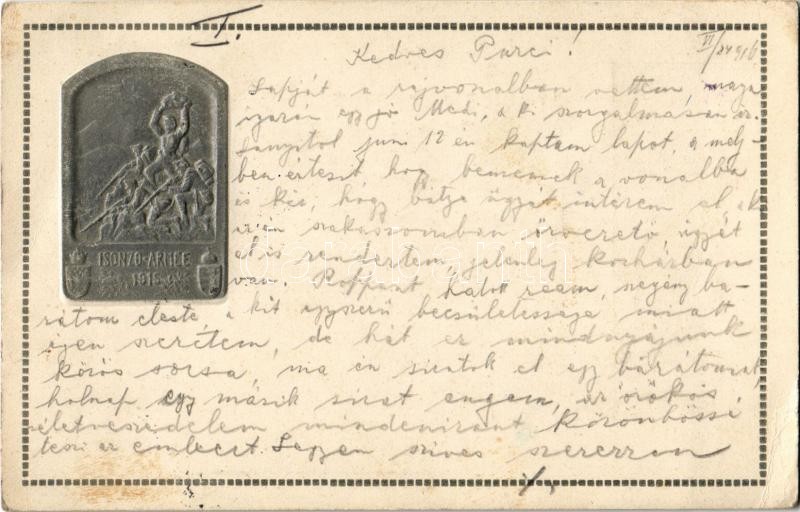 I.
VI/24 916
Kedves Purci!
Lapját a rajvonalban vettem, maga
igazán egy jó Medi, a ki szorgalmasan ír.
Sanyitol jun 12 én kaptam lapot, a mely-
ben értesit hogy bemennek a vonalba
és kér, hogy Batya ügyét intézem el, a ki
az én szakaszomban őrvezető ügyét
el is rendeztem, jelenleg korházban
van. Roppant hatot reám, szegény ba-
rátom eleste a kit egyszerű becsületessége miatt
igen szerettem, de hát ez mindnyájunk
közös sorsa ma én siratok el egy barátomat,
holnap egy másik sirat engem, az örökös
életveszedelem mindeniránt közönbössé
teszi az embert. Legyen szives szerezzen
ISONZO-ARMEE
1915